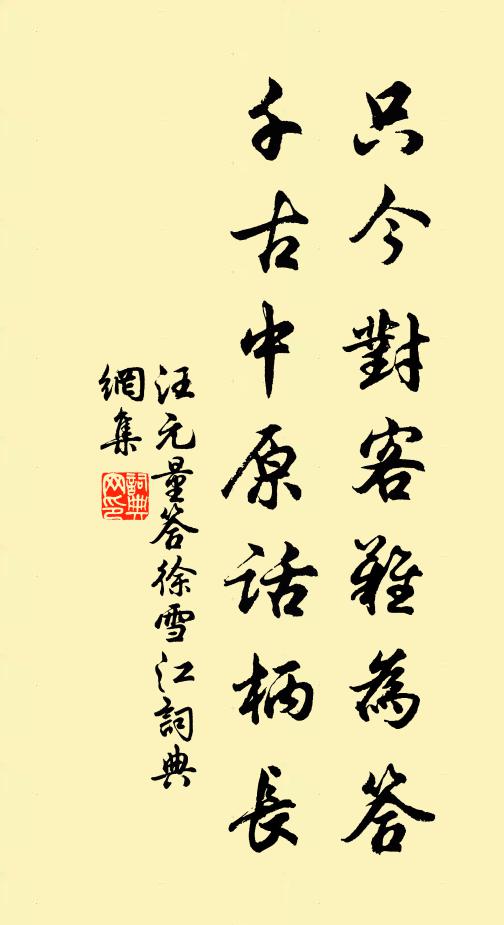 只今對客難為答
千古中原話柄長
汪元量答徐雪江詞典
網集
詞典
网印